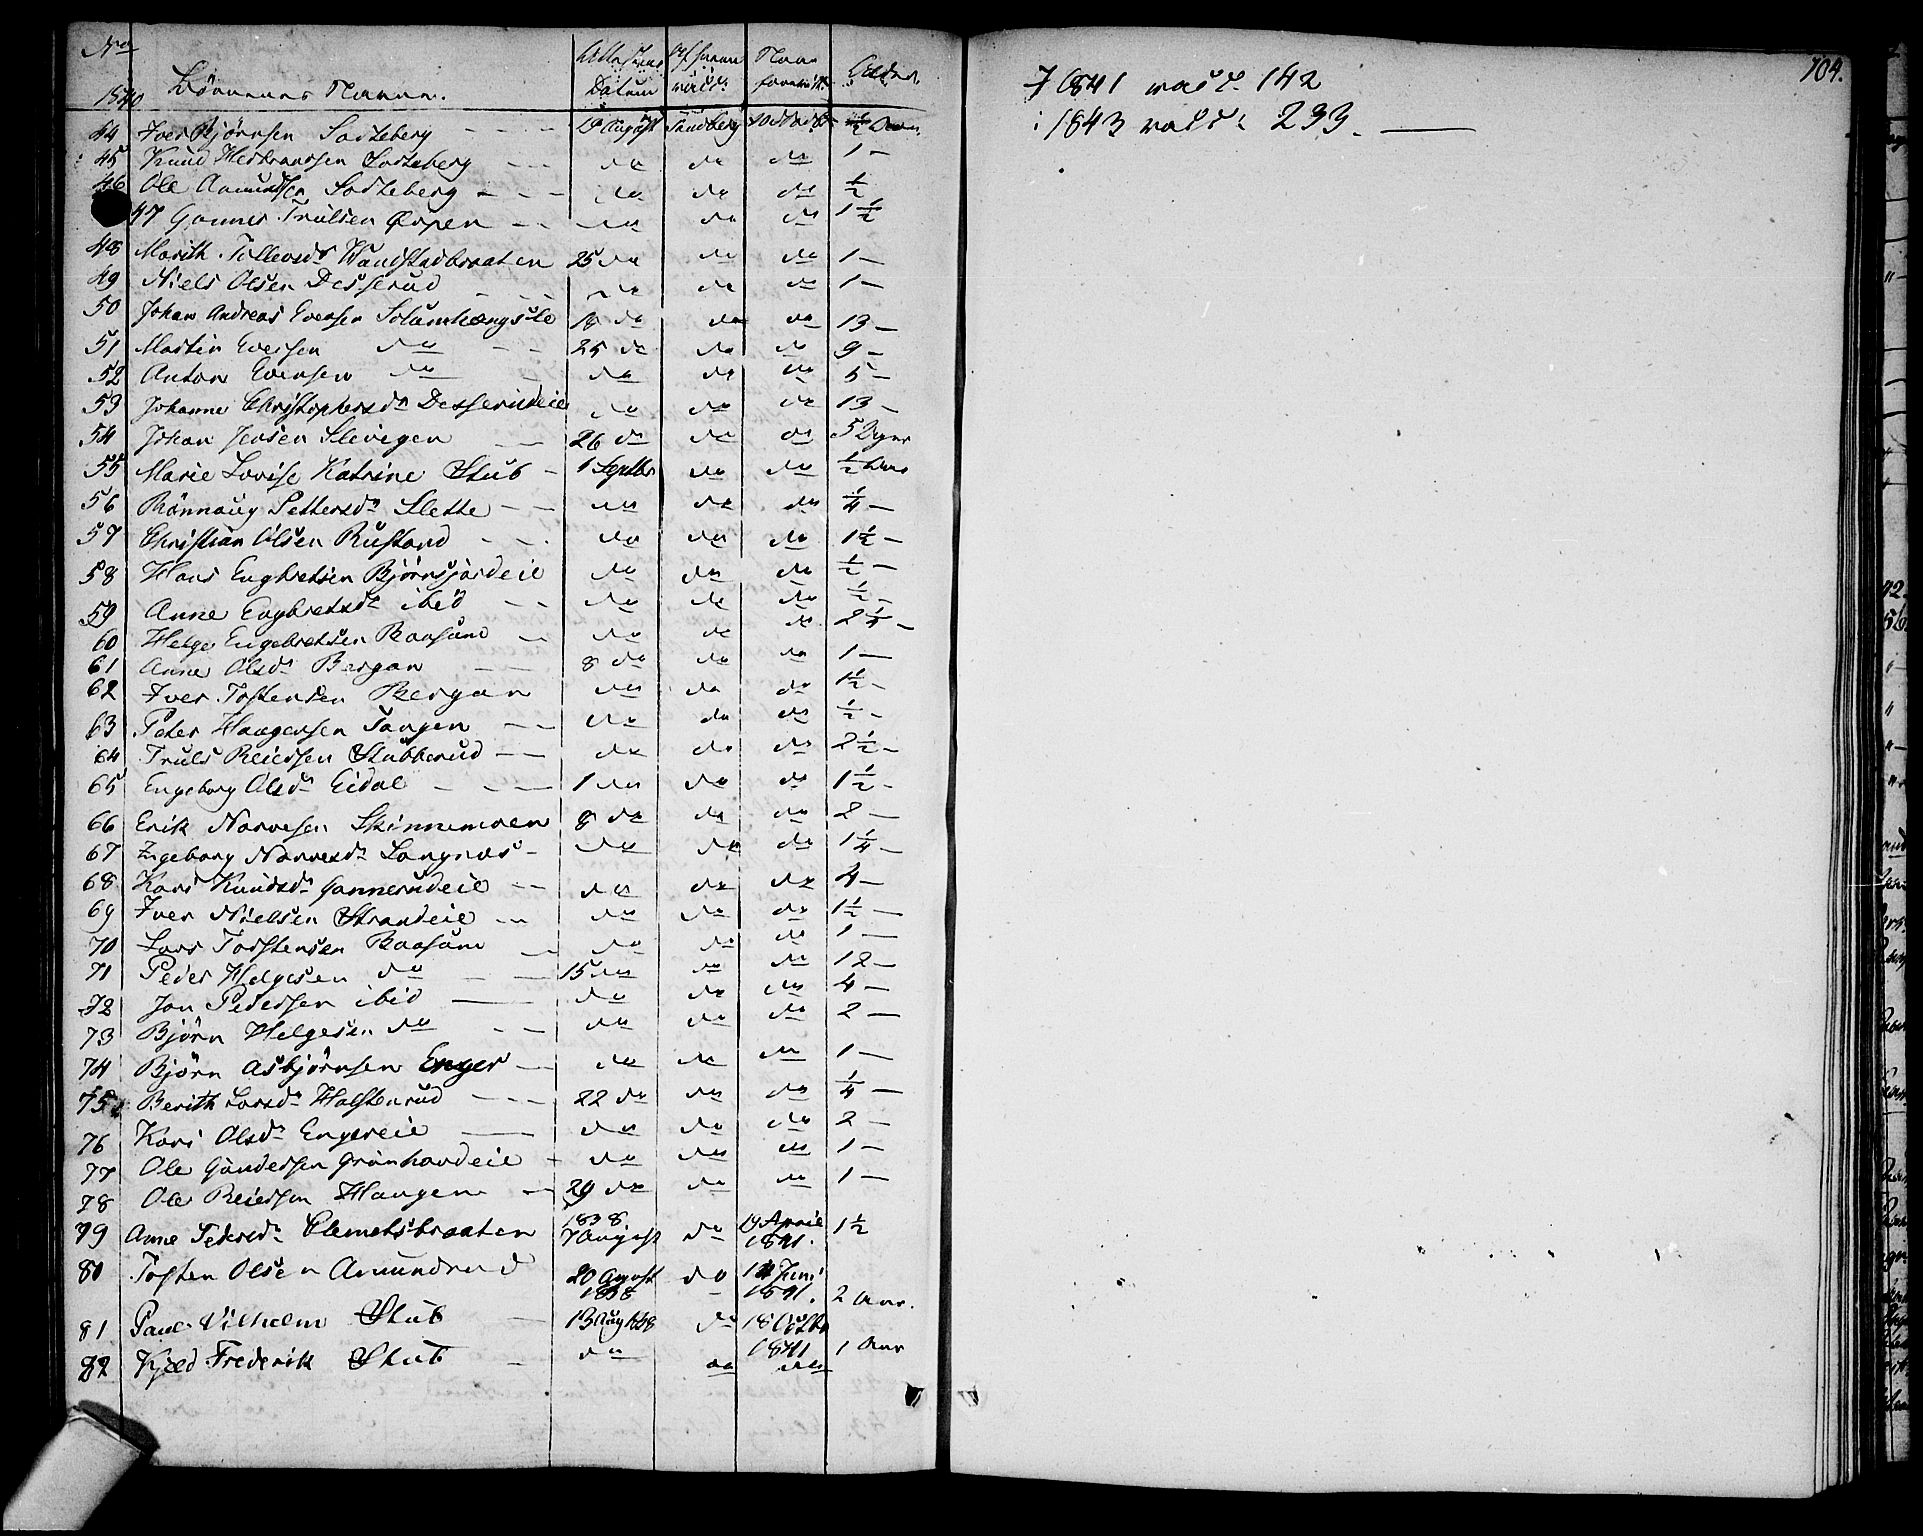 No 1840 Børnenes Navne. Attestens Datum Af hvem vacc: Naar foreviist Alder.
44 Iver Bjørnsen Sorteberg 18 August Sandberg 1/2 Aar.
45 Knud Sorteberg do do do 1
46 Ole Amundsen Sorteberg do do do 1/2
47 Gunner Trulsen Ørpen do do do 1 1/2
48 Marith Tollevsdr Wandstadbraaten 25 do do do 1
49 Niels Olsen Desserud do do do 1
50 Johan Andreas Evensen 18 do do do 13
51 Martin Evensen do 25 do do do 9
52 Anton Evensen do do do do 5
53 Johanne Christophersdr Desserudeie do do do 13
54 Johan Jensen Slevigen 26 do do do 5
55 Marie Lovise Katrine Stub 1 Septbr do do 1/2 Aar
56 Rønnaug Pettersdr Slette do do do 1/4
57 Christian Olsen Rustand do do do 1 1/2
58 Hans Engbretsen Bjørnsjordeie do do do 1/2
59 Anne Engbretsdr ibid do do do 1/2
60 Helge Engebretsen Baasum do do do 2 1/4
61 Anne Olsdr Bergan 8 do do do 1
62 Iver Tostensen Bergan do do do 1 1/2
63 Peter Haagensen Tangen do do do 1/2
64 Truls Reiersen Stubberud do do do 2 1/2
65 Engeborg Olsdr Eidal 1 do do do 1 1/2
66 Erik Narvesen Skinnemoen 8 do do do 2
67 Ingeborg Narvesdr Langnæs do do do 1 1/4
68 Kari Knudsdr Gannerudeie do do do 4
69 Iver Nielsen Strandeie do do do 1 1/2
70 Lars Torstensen Baasum do do do 1
71 Peder Helgesen do 15 do do do 12
72 Jon Pedersen ibid do do do 4
73 Bjørn Helgesen do do do do 2
74 Bjørn Asbjørnsen Enger do do do 1
75 Berith Larsdr Halstenrud 22 do do do 1/4
76 Kari Olsdr Engereie do do do 2
77 Ole Gundersen Grønhovdeie do do do 1
78 Ole Reiersen Haugen 29 do do do 1
79 Anne Pedersdr Clemetsbraaten 1838 7 August do 19 April 1841. 1 1/2
80 Tosten Olsen Amundrud 20 August 1838 do 14 Juni 1841. 2 Aar.
81 Paul Vilhelm Stub 13 Aug 1838 do 18 Octbr 1841 1 Aar
82 Kjeld Frederik Stub do do do
104.
I 1841 vacc. 142
i 1843 vacc: 233.